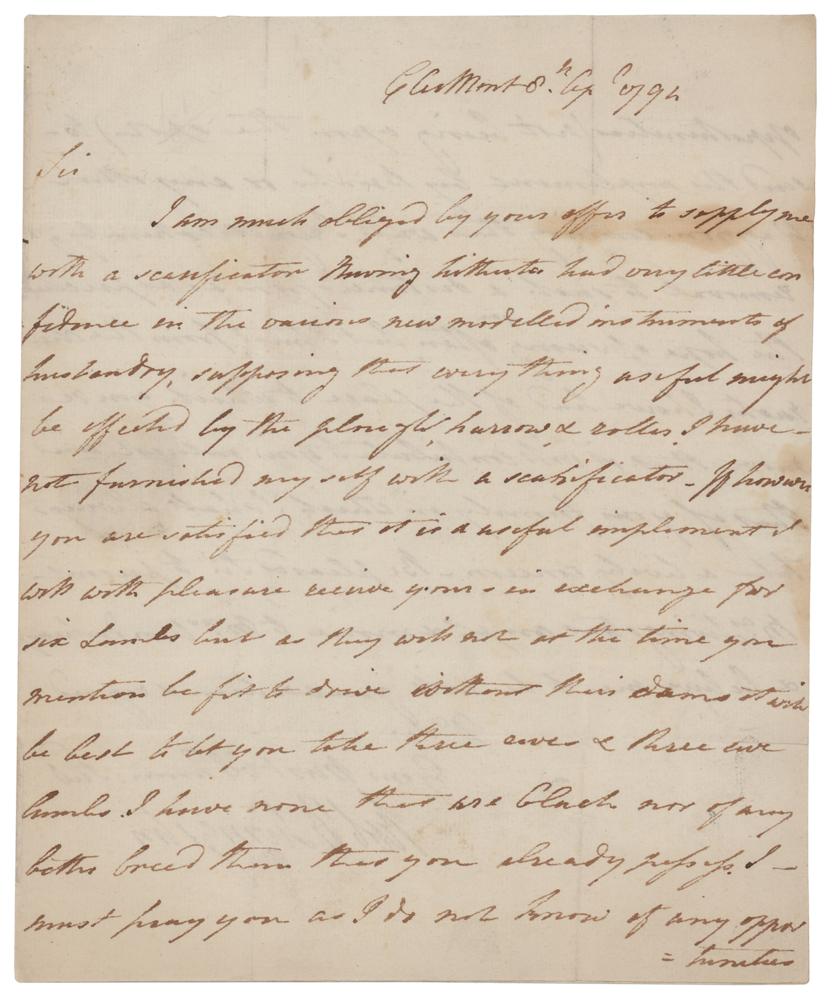 ClerMont 8.th Ap.l 1794
Sir
I am much obliged by your offer to supply me
with a scarificator Having hitherto had very little con
fidence in the various new modelled instruments of
husbandry, supposing that every thing useful might
be effected by the plough, harrow & roller, I have –
not furnished my self with a scarificator – If however
you are satisfied that it is a useful implement I
will with pleasure receive yours in exchange for
six Lambs but as they will not at the time you
mention be fit to drive without their dams it will
be best to let you take three ewes & three ewe
lambs. I have none that are black nor of any
better breed then that you already possess. I –
must pray you as I do not know of any oppor
= tunities